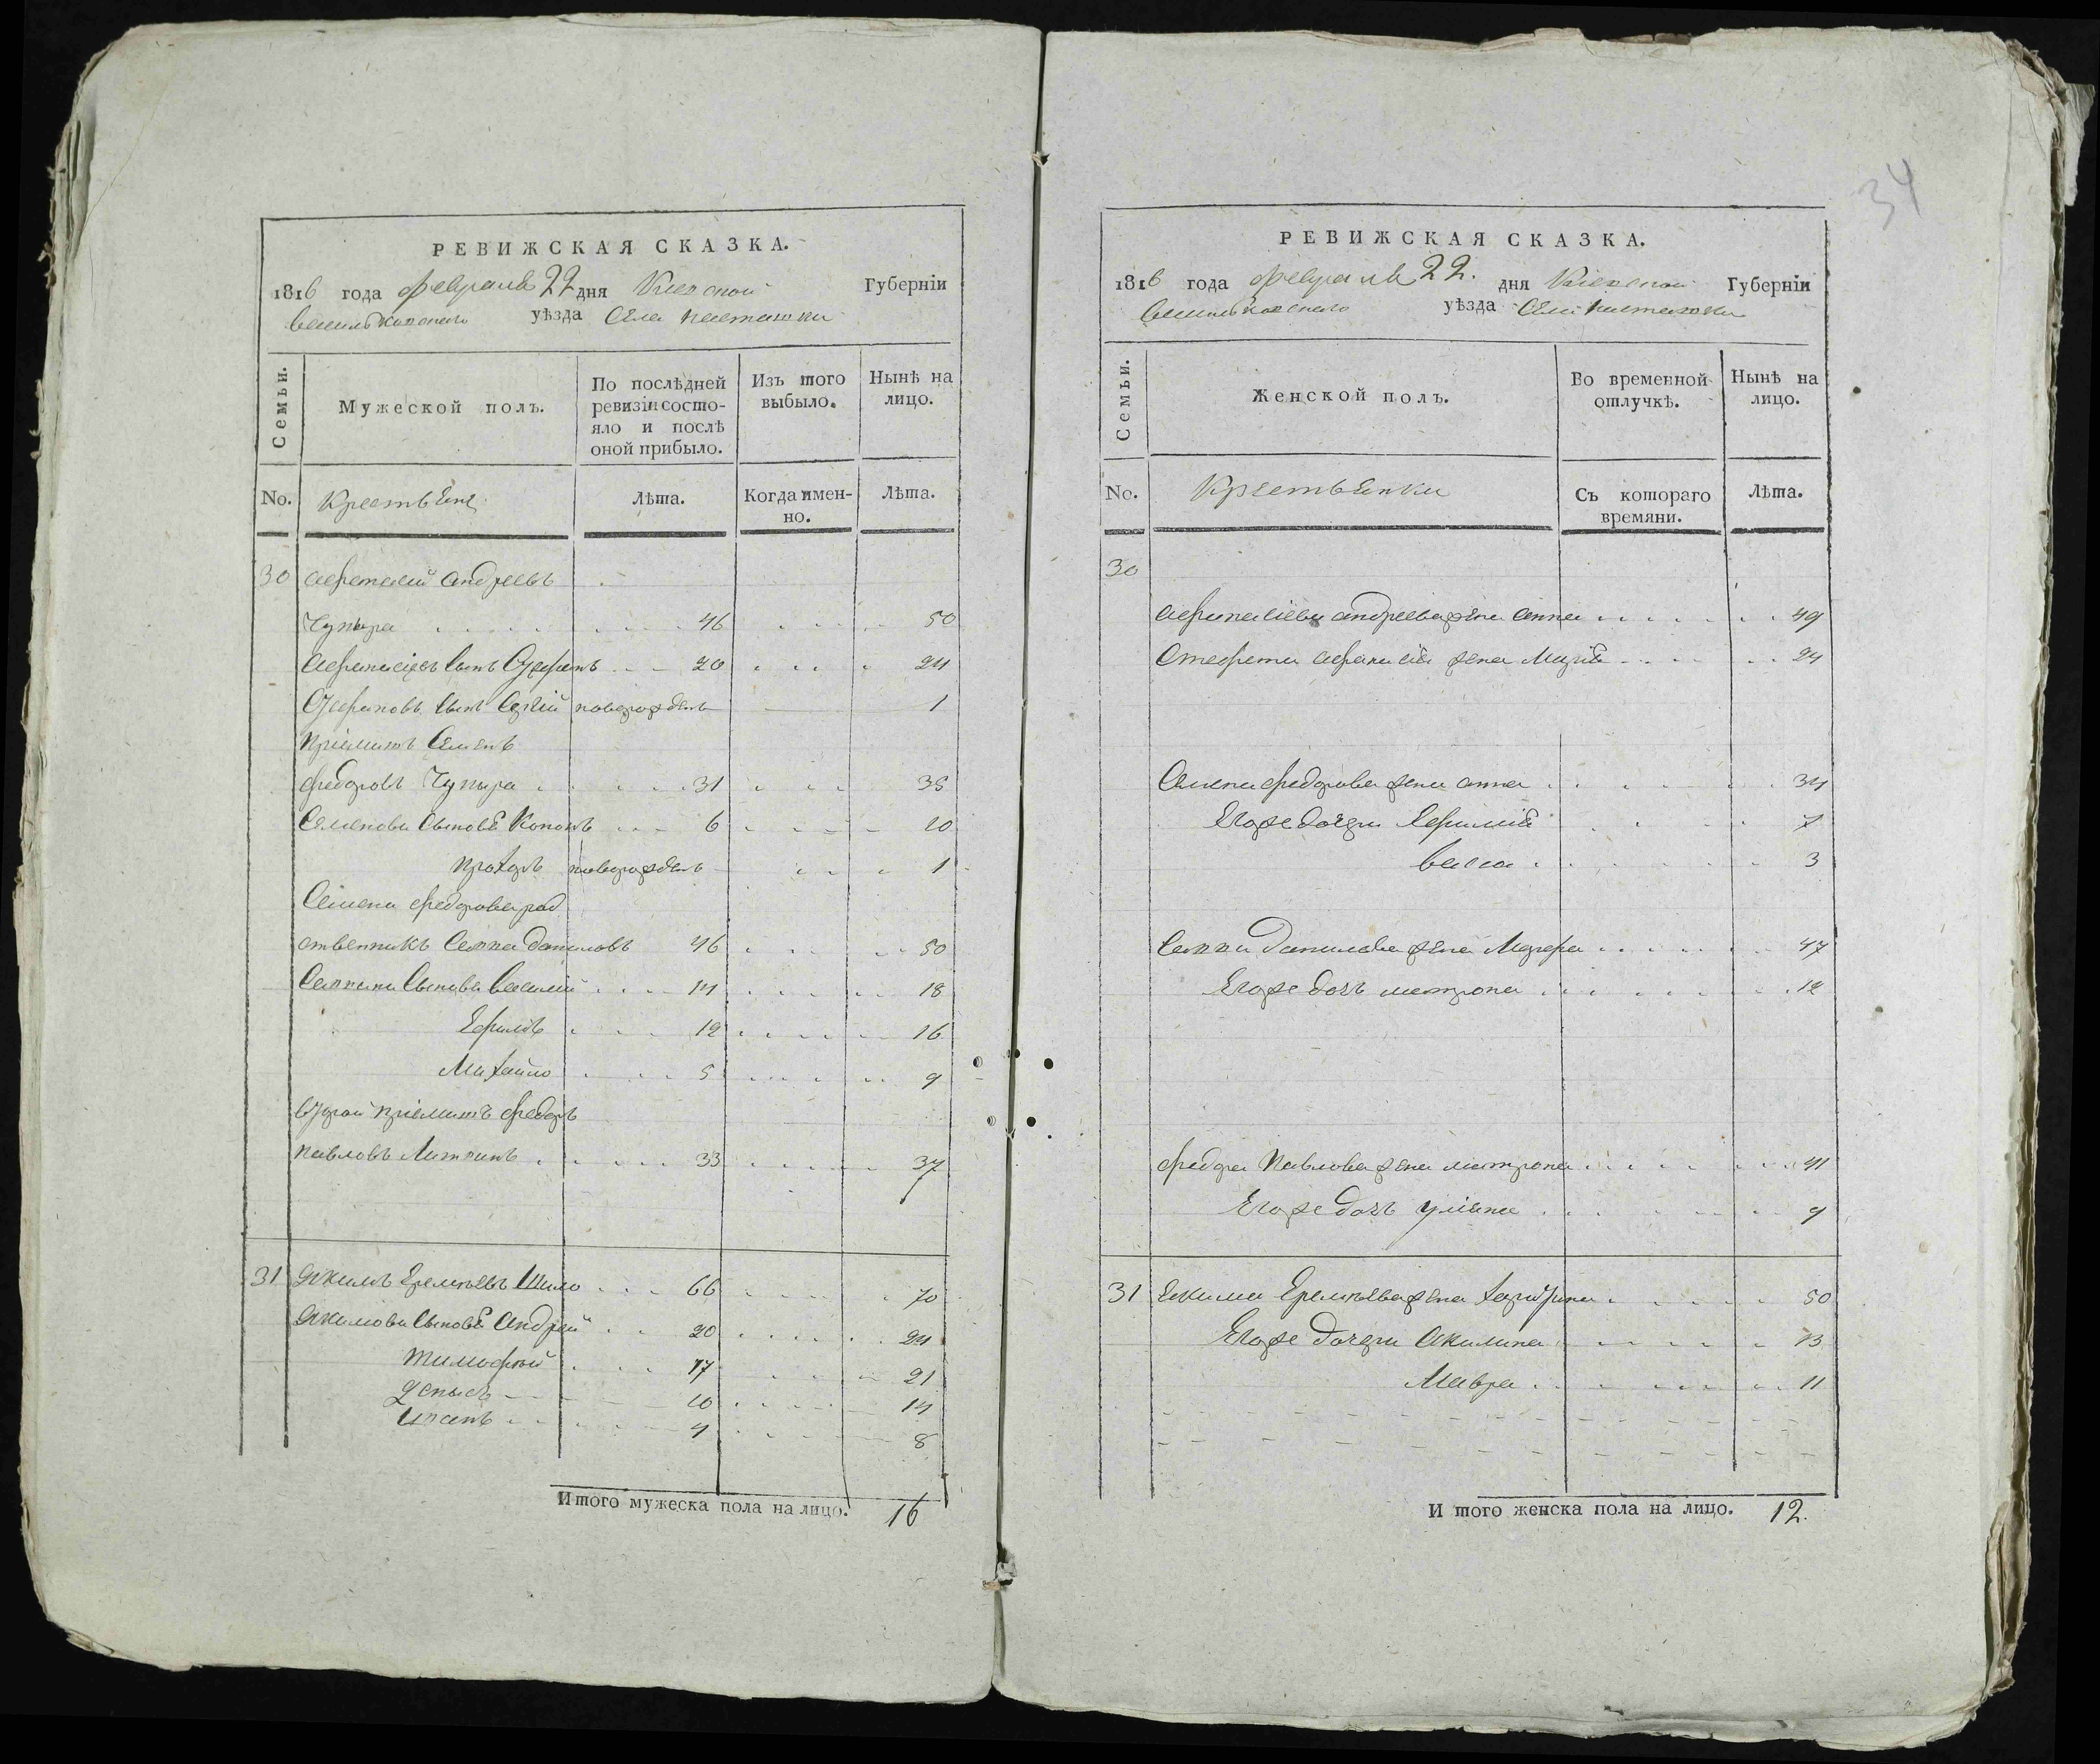 34
РЕВИЖСКАЯ СКАЗКА.
1816 года февраля 22 дня Киевской Губерніи
васильковского уѣзда села насташки
Семьи.
Мужеской полъ.
По послѣдней
ревизіи состо-
яло и послѣ
оной прибыло.
Изъ того
выбыло.
Нынѣ на
лицо.
No.
Крестьяне
Лѣта.
Когда имен-
но.
Лѣта.
30 афанасий андреевъ
46 50
афанасіевъ сынъ Стефанъ 20 24
Стефановъ сынъ Сергій новорожденъ 1
приимитъ Семенъ
федоровъ 31 35
Семенови сыновѣ Кононъ 6 10
прохоръ новорожденъ 1
Семена федорова род
ственникъ Савка даниловъ 46 50
Савкини сынови василий 14 18
Ефимъ 12 16
Михайло 5 9
второй приимитъ федоръ
павловъ 33 37
31 Якимъ Еремѣевъ Шило 66 70
Якимови сыновѣ андрей 20 24
тимофий 17 21
денысъ 10 14
иванъ 4 8
Итого мужеска пола на лицо. 16
РЕВИЖСКАЯ СКАЗКА.
1816 года февраля 22. дня Киевской Губерніи
васильковского уѣзда села насташки
Семьи.
Женской полъ.
Во временной
отлучкѣ.
Нынѣ на
лицо.
No.
Крестьянки
Съ котораго
времяни.
Лѣта.
30
афанасіева андреева жена анна 49
Стефана афанасія жена Марія 24
Семена федорова жена анна 34
Егоже дочери Ефимія 7
васса 3
Савки данилова жена 47
Егоже дочь матрона 12
федора павлова жена матрона 41
Егоже дочь уліяна 9
31 Екима Еремѣева жена 50
Егоже дочери акилина 13
Мавра 11
И того женска пола на лицо. 12.